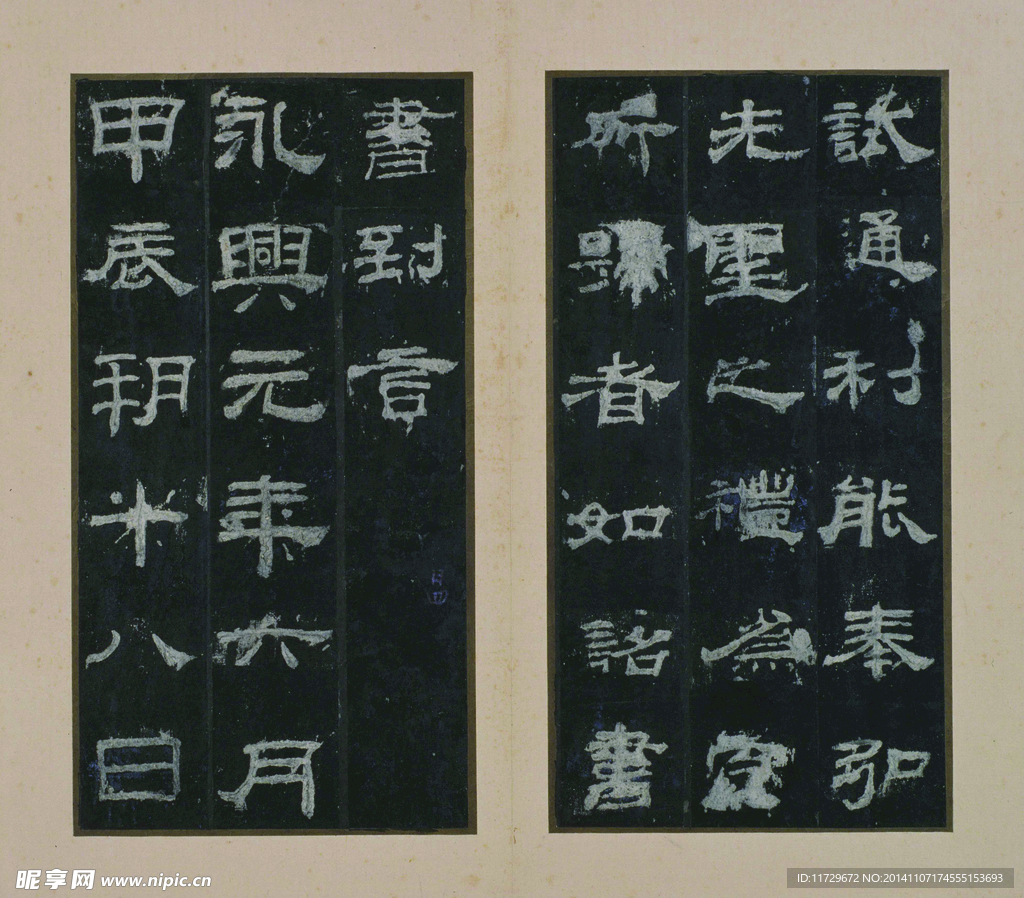 試通利能奉弘
先聖之禮為宗
所歸者如詔書
書到言
永興元年六月
甲辰朔十八日
昵享网 www.nipic.cn
ID:11729672 NO:20141107174555153693